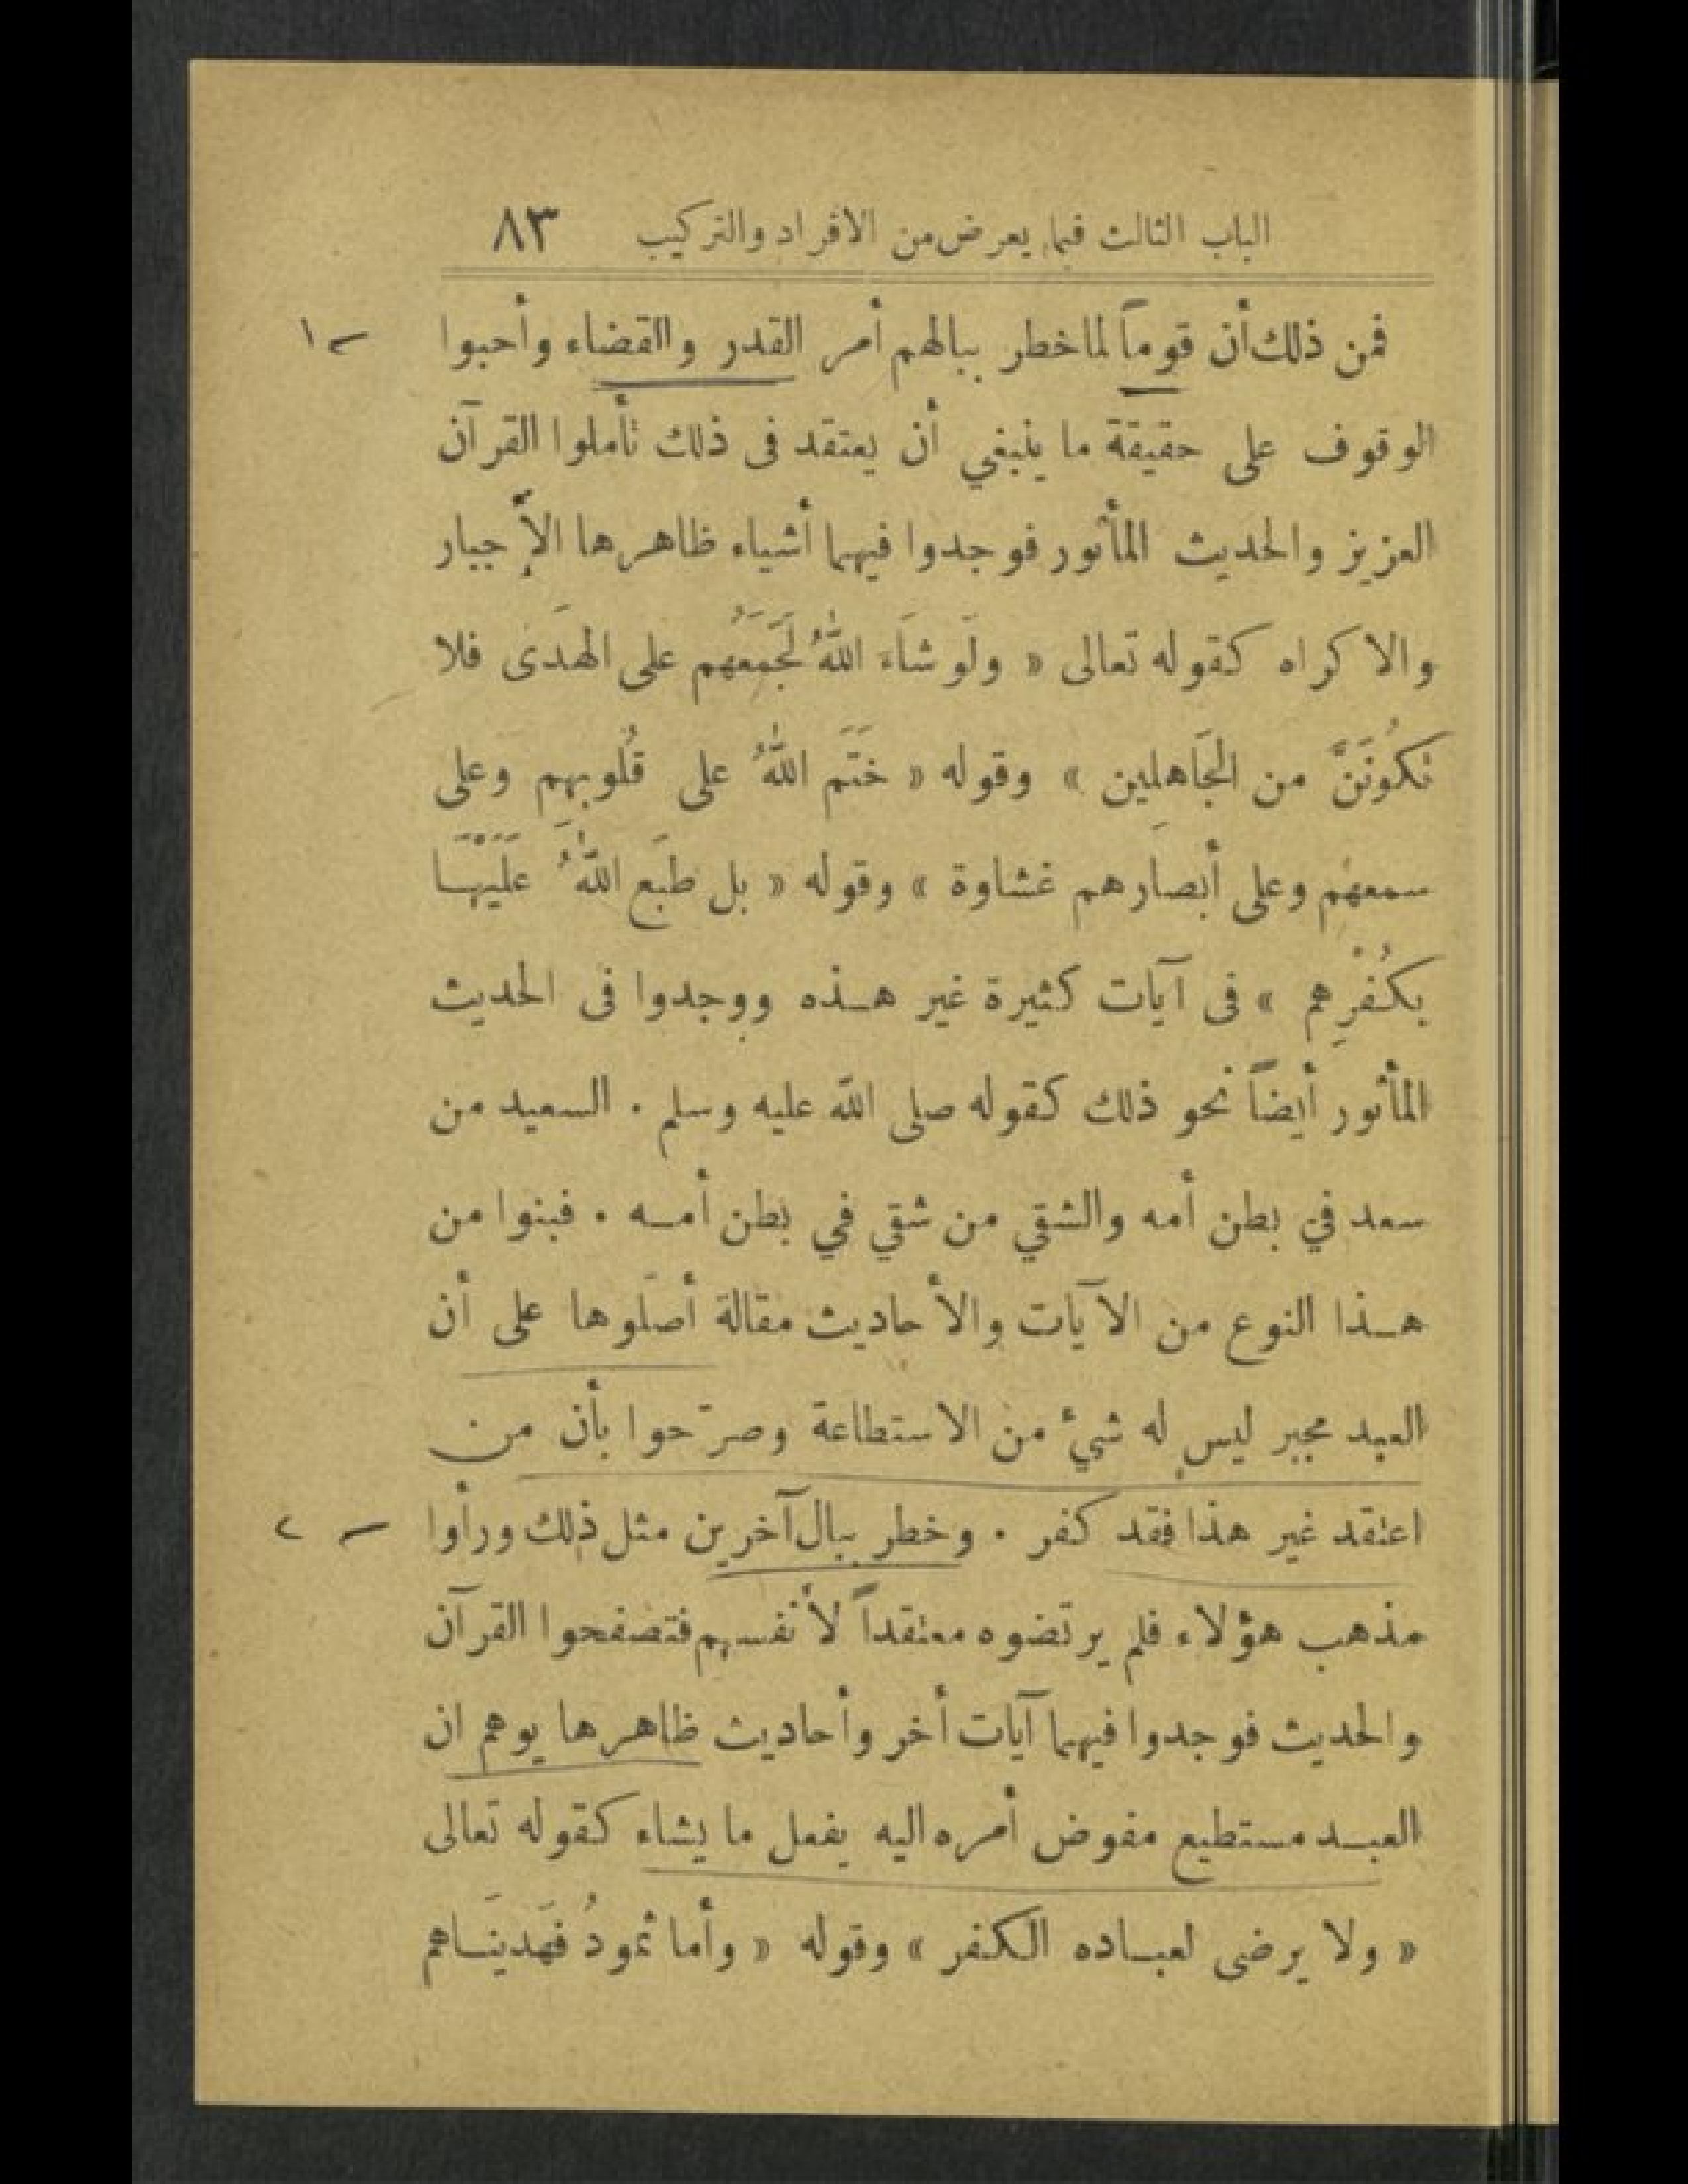 الباب الثالث فيما يعرض من الافراد والتركيب ٨٣
فمن ذلك أن قوماً لما خطر ببالهم أمر القدر والقضاء وأحبوا
١ -
الوقوف على حقيقة ما ينبغي أن يعتقد فى ذلك تأملوا القرآن
العزيز والحديث المأثور فوجدوا فيهما أشياء ظاهرها الإجبار
والاكراه كقوله تعالى « ولَو شَاءَ اللهُ لَجَمَعَهُم على الهدَى فلا
تكُونَنَّ من الجَاهلِين » وقوله « خَتَم اللهُ على قُلوبِهِم وعلى
سمعهِم وعلى أبصارهم غشاوة » وقوله « بل طَبَع اللهُ عَلَيْهَا
بكُفْرِهم » فى آيات كثيرة غير هذه ووجدوا فى الحديث
المأثور أيضاً نحو ذلك كقوله صلى الله عليه وسلم . السعيد من
سعد في بطن أمه والشقي من شقي في بطن أمه . فبنوا من
هذا النوع من الآيات والأحاديث مقالة أصلوها على أن
العبد مجبر ليس له شيء من الاستطاعة وصرّحوا بأن من
اعتقد غير هذا فقد كفر . وخطر ببال آخرين مثل ذلك ورأوا
- ٢
مذهب هؤلاء فلم يرتضوه معتقداً لأنفسهم فتصفحوا القرآن
والحديث فوجدوا فيهما آيات أخر وأحاديث ظاهرها يوهم ان
العبد مستطيع مفوض أمره اليه يفعل ما يشاء كقوله تعالى
« ولا يرضى لعباده الكفر » وقوله « وأما ثمودُ فَهَدينَاهم